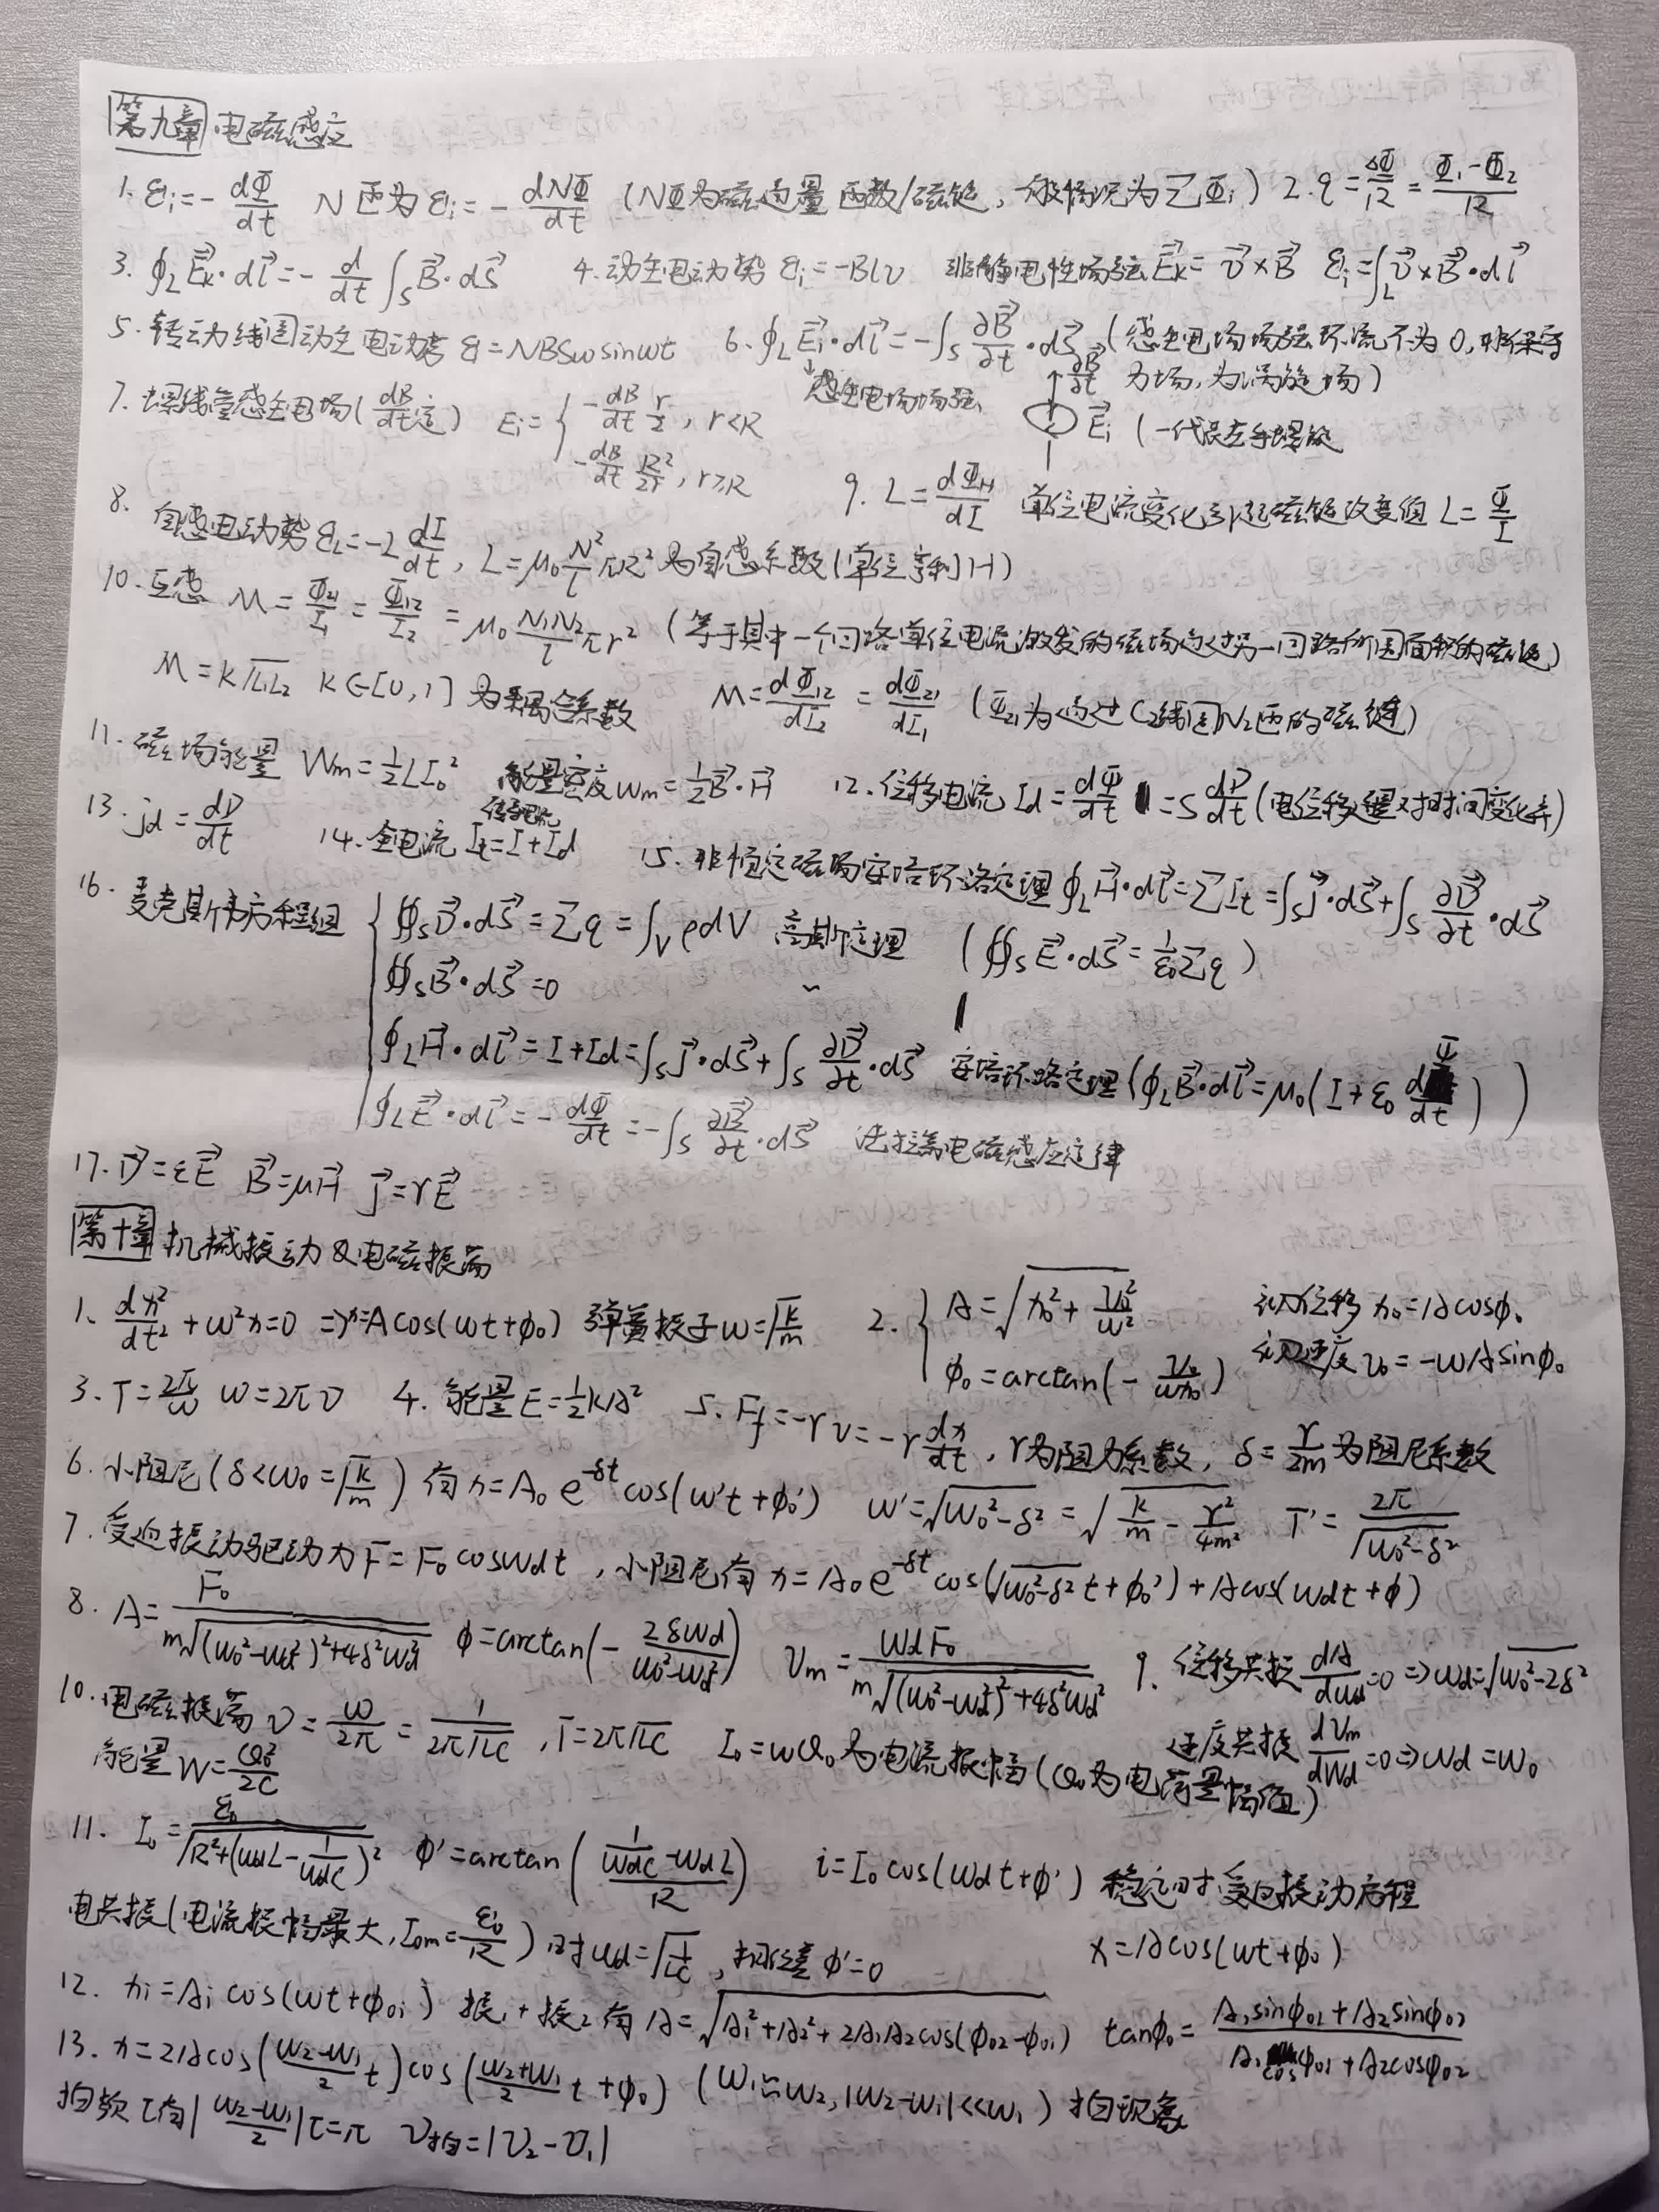 第九章 电磁感应
1. εi=-dΦ/dt N匝为εi=-dNΦ/dt (NΦ为磁通量匝数/磁链,一般情况为ΣΦi) 2. q=ΔΦ/R=(Φ1-Φ2)/R
3. ∮L Ek·dl=-d/dt ∫S B·dS 4. 动生电动势 εi=-Blv 非静电性场强Ek=v×B εi=∫L v×B·dl
5. 转动线圈动生电动势 ε=NBSωsinωt 6. ∮L Ei·dl=-∫S ∂B/∂t·dS (感生电场场强环流不为0,非保守
↓感生电场场强 ∂B/∂t 力场,为涡旋场)
7. 螺线管感生电场(dB/dt定) Ei={ -dB/dt r/2, r<R Ei (一代表左手螺旋
-dB/dt R²/2r, r≥R
8. 自感电动势εL=-L dI/dt, L=μ0 N²/l πR²为自感系数(单位亨利H) 9. L=dΦN/dI 单位电流变化引起磁链改变值 L=Φ/I
10. 互感 M=Φ21/I1=Φ12/I2=μ0 N1N2/l πr² (等于其中一个回路单位电流激发的磁场通过另一回路所围面积的磁链)
M=k√L1L2 k∈[0,1]为耦合系数 M=dΦ12/dI2=dΦ21/dI1 (Φ21为通过C2线圈N2匝的磁链)
11. 磁场能量 Wm=½LI0² 能量密度wm=½B·H 12. 位移电流 Id=dΦ/dt=S dD/dt (电位移通量对时间变化率)
13. jd=dD/dt 14. 全电流 It=I+Id 传导电流 15. 非恒定磁场安培环路定理 ∮L H·dl=ΣIt=∫S j·dS+∫S ∂D/∂t·dS
16. 麦克斯韦方程组 { ∯S D·dS=Σq=∫V ρdV 高斯定理 (∯S E·dS=1/ε0 Σq)
∯S B·dS=0
∮L H·dl=I+Id=∫S j·dS+∫S ∂D/∂t·dS 安培环路定理(∮L B·dl=μ0(I+ε0 dΦ/dt))
∮L E·dl=-dΦ/dt=-∫S ∂B/∂t·dS 法拉第电磁感应定律
17. D=εE B=μH j=γE
第十章 机械振动&电磁振荡
1. dx²/dt²+ω²x=0 ⇒x=Acos(ωt+φ0) 弹簧振子ω=√(k/m) 2. { A=√(x0²+v0²/ω²) 初位移 x0=Acosφ0
φ0=arctan(-v0/ωx0) 初速度 v0=-ωAsinφ0
3. T=2π/ω ω=2πν 4. 能量E=½kA² 5. Ff=-γv=-γ dx/dt, γ为阻力系数, δ=γ/2m为阻尼系数
6. 小阻尼(δ<ω0=√(k/m)) 有x=A0 e^(-δt) cos(ω't+φ0') ω'=√(ω0²-δ²)=√(k/m-γ²/4m²) T'=2π/√(ω0²-δ²)
7. 受迫振动驱动力F=F0 cosωdt, 小阻尼有x=A0 e^(-δt) cos(√(ω0²-δ²)t+φ0')+Acos(ωdt+φ)
8. A=F0/m√((ω0²-ωd²)²+4δ²ωd²) φ=arctan(-2δωd/(ω0²-ωd²)) vm=ωdF0/m√((ω0²-ωd²)²+4δ²ωd²) 9. 位移共振 dA/dωd=0⇒ωd=√(ω0²-2δ²)
速度共振 dvm/dωd=0⇒ωd=ω0
10. 电磁振荡 ν=ω/2π=1/2π√LC, T=2π√LC I0=ωQ0为电流振幅(Q0为电荷量幅值)
能量W=Q0²/2C
11. I0=ε0/√(R²+(ωdL-1/ωdC)²) φ'=arctan((1/ωdC-ωdL)/R) i=I0cos(ωdt+φ') 稳定时受迫振动方程
电共振(电流振幅最大, I0m=ε0/R)时ωd=√(1/LC), 相位差φ'=0 x=Acos(ωt+φ0)
12. xi=Ai cos(ωt+φ0i) 振1+振2有A=√(A1²+A2²+2A1A2cos(φ02-φ01)) tanφ0=(A1sinφ01+A2sinφ02)/(A1cosφ01+A2cosφ02)
13. x=2Acos((ω2-ω1)/2 t)cos((ω2+ω1)/2 t+φ0) (ω1≈ω2, |ω2-ω1|<<ω1) 拍现象
拍频 τ有|(ω2-ω1)/2|τ=π ν拍=|ν2-ν1|